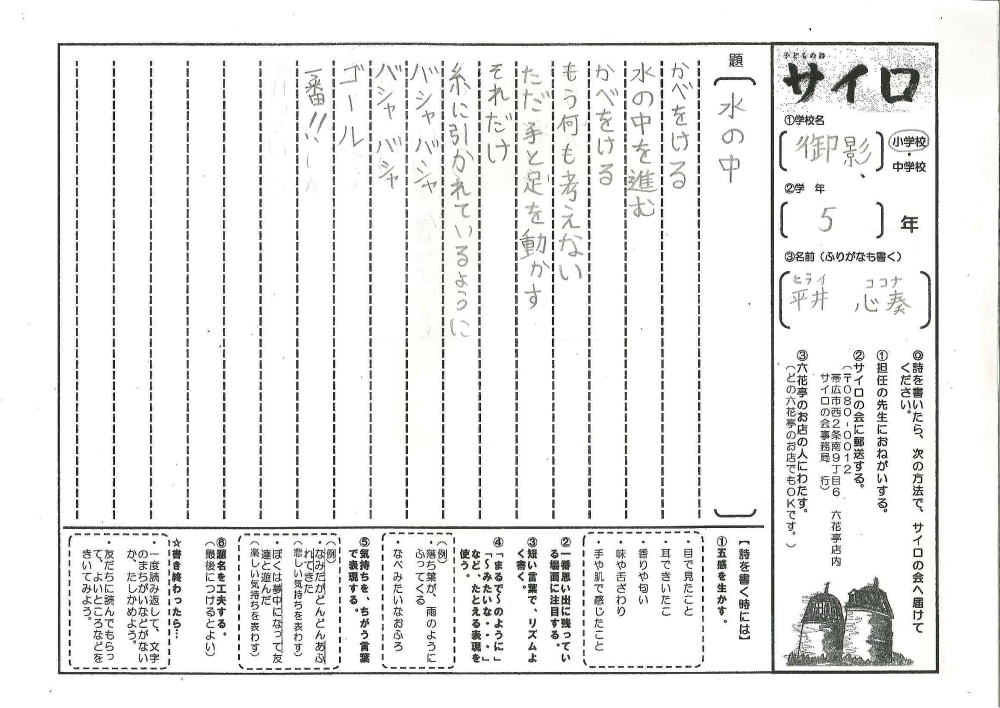 子どもの詩
サイロ
①学校名
御影
小学校
・
中学校
②学　年
5
年
③名前（ふりがなも書く）
ヒライ　ココナ
平井　心奏
◎詩を書いたら、次の方法で、サイロの会へ届けて
ください。
①担任の先生におねがいする。
②サイロの会に郵送する。
（〒080-0012
帯広市西2条南9丁目6　六花亭店内
サイロの会事務局　行）
③六花亭のお店の人にわたす。
（どの六花亭のお店でもOKです。）
題
水の中
かべをける
水の中を進む
かべをける
もう何も考えない
ただ手と足を動かす
それだけ
糸に引かれているように
バシャバシャ
バシャバシャ
ゴール
一番!!
【詩を書く時には】
①五感を生かす。
・目で見たこと
・耳できいたこ
・香りや匂い
・味や舌ざわり
・手や肌で感じたこと
②一番思い出に残ってい
る場面に注目する。
③短い言葉で、リズムよ
く書く。
④「まるで～のように」
「～みたいな・・・」
など、たとえる表現を
使う。
（例）
・落ち葉が、雨のように
ふってくる
・なべみたいなおふろ
⑤気持ちを、ちがう言葉
で表現する。
（例）
・なみだがどんどんあふ
れてきた
（悲しい気持ちを表わす）
・ぼくは夢中になって友
達と遊んだ
（楽しい気持ちを表わす）
⑥題名を工夫する。
（最後につけるとよい）
☆書き終わったら…
・一度読み返して、文字
のまちがいなどがない
か、たしかめよう。
・友だちに読んでもらっ
て、よいところなどを
きいてみよう。